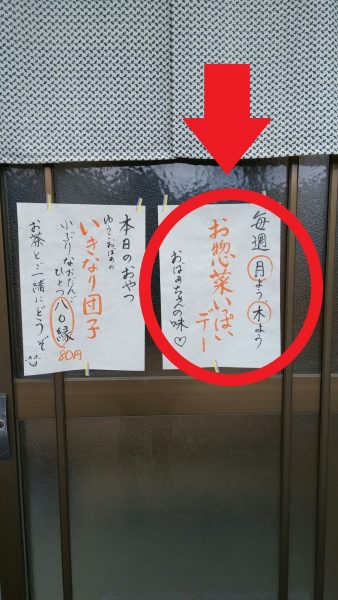 毎週月よう、木よう
お惣菜いっぱい
デー
おばあちゃんの味♡
本日のおやつ
いきなり団子
小ぶりなおだんご
ひとつ八〇縁
80円
お茶と一緒にどうぞ